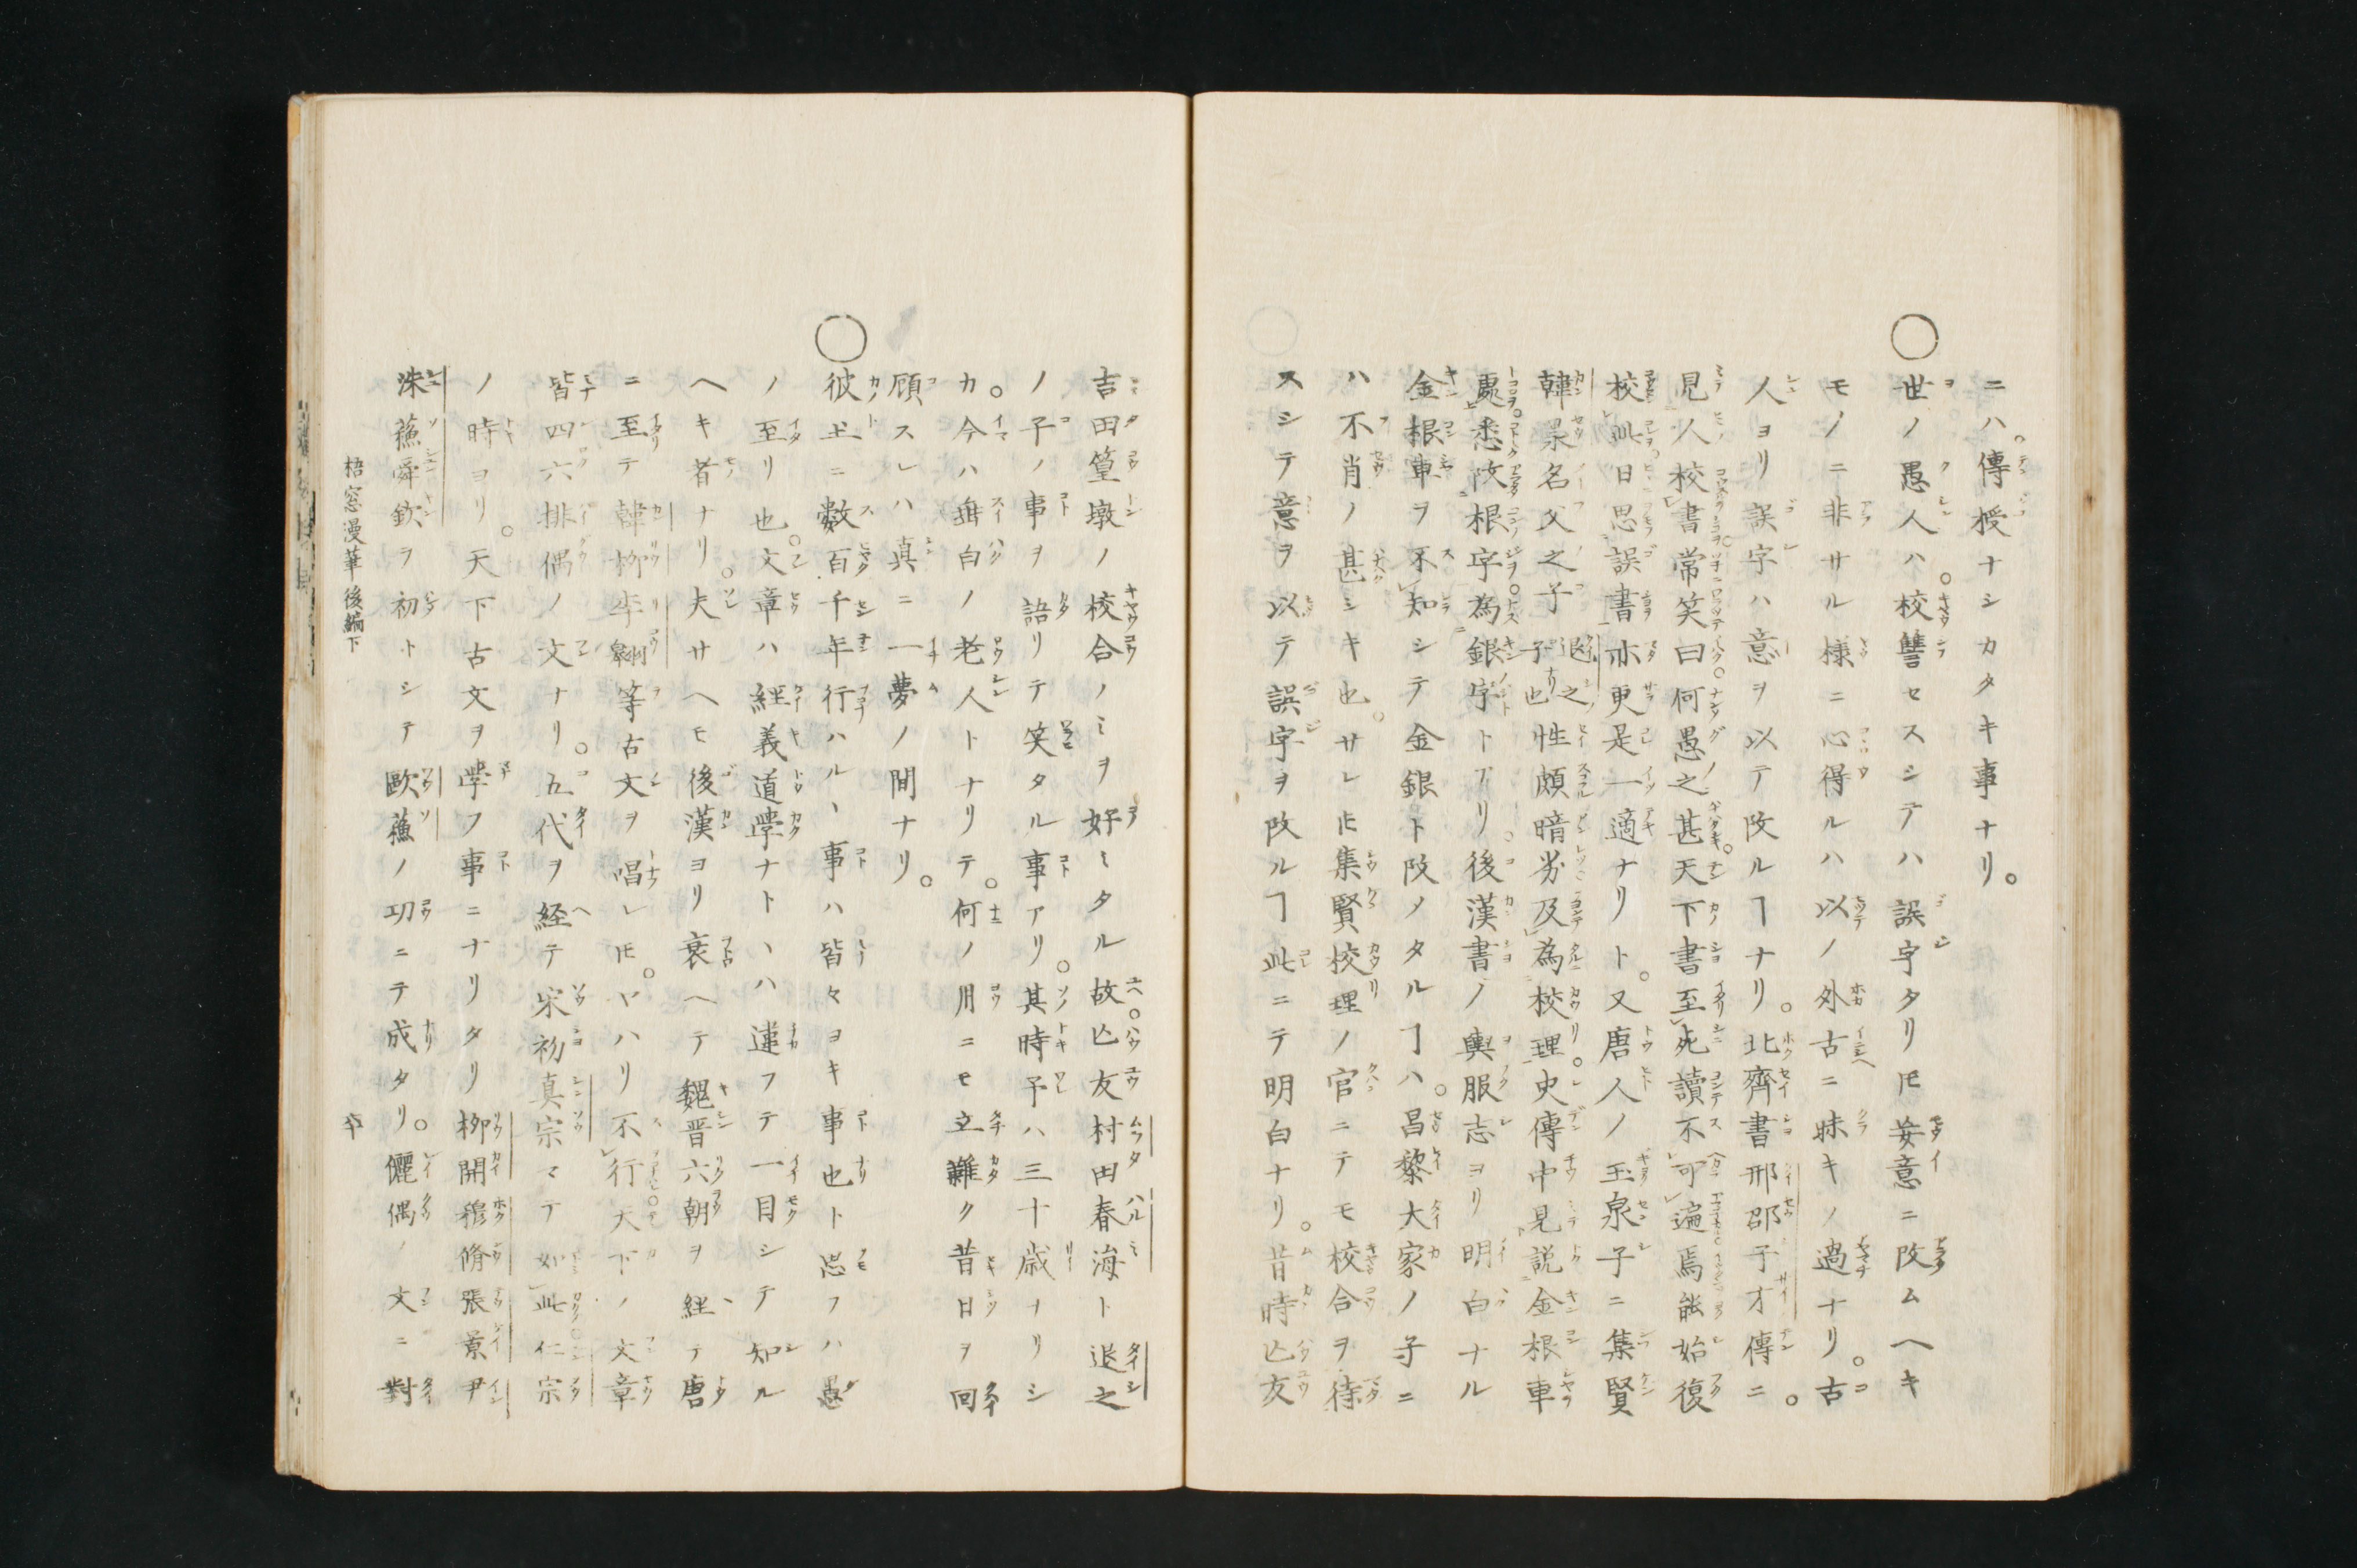 ニハ。傳授ナシカタキ事ナリ。
○世ノ愚人ハ。校讐セスシテハ誤字タリ𪜈妄意ニ改ムヘキ
モノニ非サル様ニ心得ルハ以ノ外古ニ昧キノ過ナリ。古
人ヨリ誤字ハ意ヲ以テ改ルヿナリ。北齊書邢邵子才傳ニ。
見人校書常笑曰何愚之甚天下書至死讀不可遍焉能始復
校此日思誤書亦更是一適ナリト。又唐人ノ玉泉子ニ集賢
韓昶名父之子退之子也性頗暗劣及為校理。史傳中見説金根車
處。悉改根字為銀字トアリ。後漢書ノ輿服志ヨリ明白ナル
金根車ヲ不知シテ金銀ト改メタルヿハ。昌黎大家ノ子ニ
ハ不肖ノ甚シキ也。サレ𪜈集賢校理ノ官ニテモ校合ヲ待
スシテ意ヲ以テ誤字ヲ改ルヿ此ニテ明白ナリ。昔時亾友
吉田篁墩ノ校合ノミヲ好ミタル故。亾友村田春海ト退之
ノ子ノ事ヲ語リテ笑タル事アリ。其時予ハ三十歳ナリシ
カ。今ハ垂白ノ老人トナリテ。何ノ用ニモ立難ク昔日ヲ回
顧スレハ真ニ一夢ノ間ナリ。
○彼土ニ數百千年行ハルヽ事ハ皆々ヨキ事也ト思フハ愚
ノ至リ也。文章ハ經義道學ナトヽハ違フテ一目シテ知ル
ヘキ者ナリ。夫サヘモ後漢ヨリ衰ヘテ魏晋六朝ヲ經テ唐
ニ至テ韓柳李翺等古文ヲ唱レ𪜈。ヤハリ不行天下ノ文章
皆四六排偶ノ文ナリ。五代ヲ経テ宋初真宗マテ如此仁宗
ノ時ヨリ。天下古文ヲ學フ事ニナリタリ柳開穆脩張景尹
洙蘓舜欽ヲ初トシテ歐蘓ノ功ニテ成タリ。儷偶ノ文ニ對
梧窓漫筆後編下